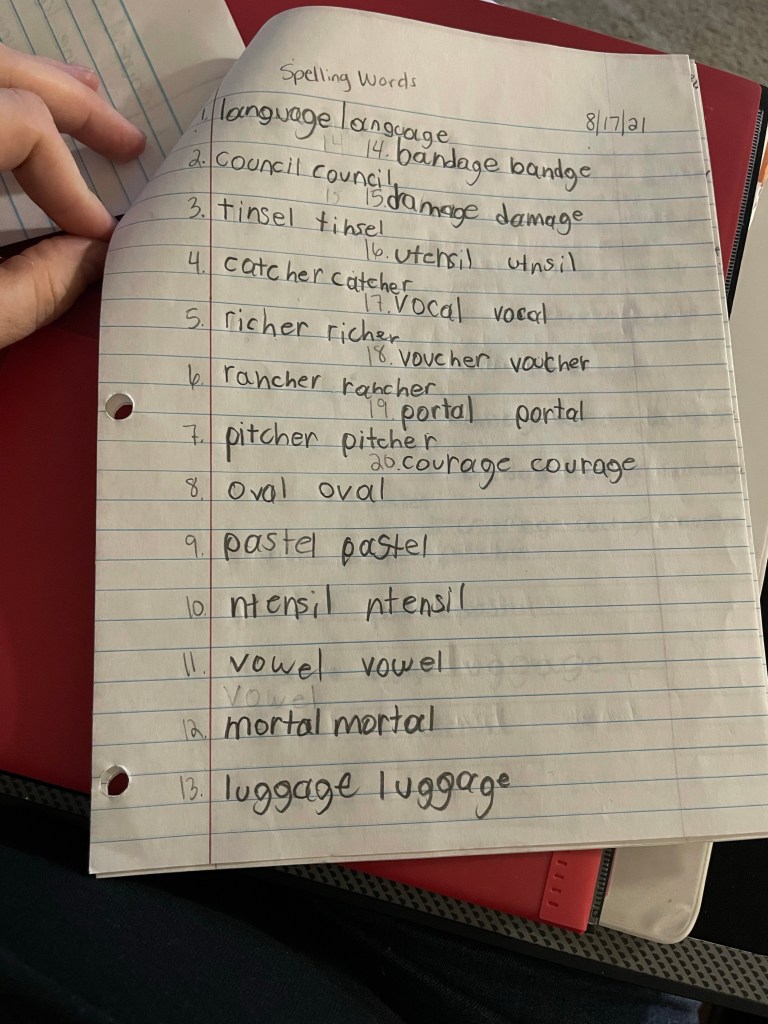 Spelling Words
8/17/21
1. language language
14. bandage bandge
2. council council
15. damage damage
3. tinsel tinsel
16. utensil utnsil
4. catcher catcher
17. vocal vocal
5. richer richer
18. voucher voucher
6. rancher rancher
19. portal portal
7. pitcher pitcher
20. courage courage
8. oval oval
9. pastel pastel
10. ntensil ntensil
11. vowel vowel
vowel
12. mortal mortal
13. luggage luggage